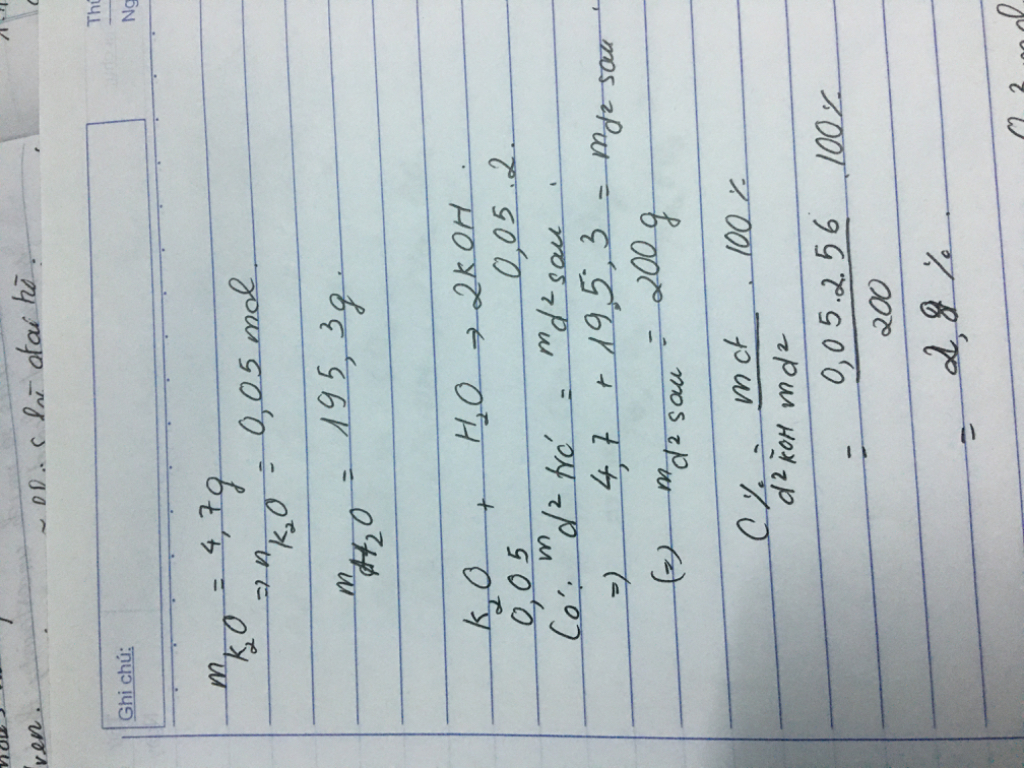 Thứ
Ng
Ghi chú:
m K₂O = 4,7g
=> n K₂O = 0,05 mol.
m H₂O = 195,3g.
K₂O + H₂O → 2KOH.
0,05 0,05.2.
Có: m d² trc = m d² sau.
=) 4,7 + 195,3 = m d² sau.
(=) m d² sau = 200g
C% d² KOH = mct / md² . 100%
= 0,05.2.56 / 200 . 100%
= 2,8%.